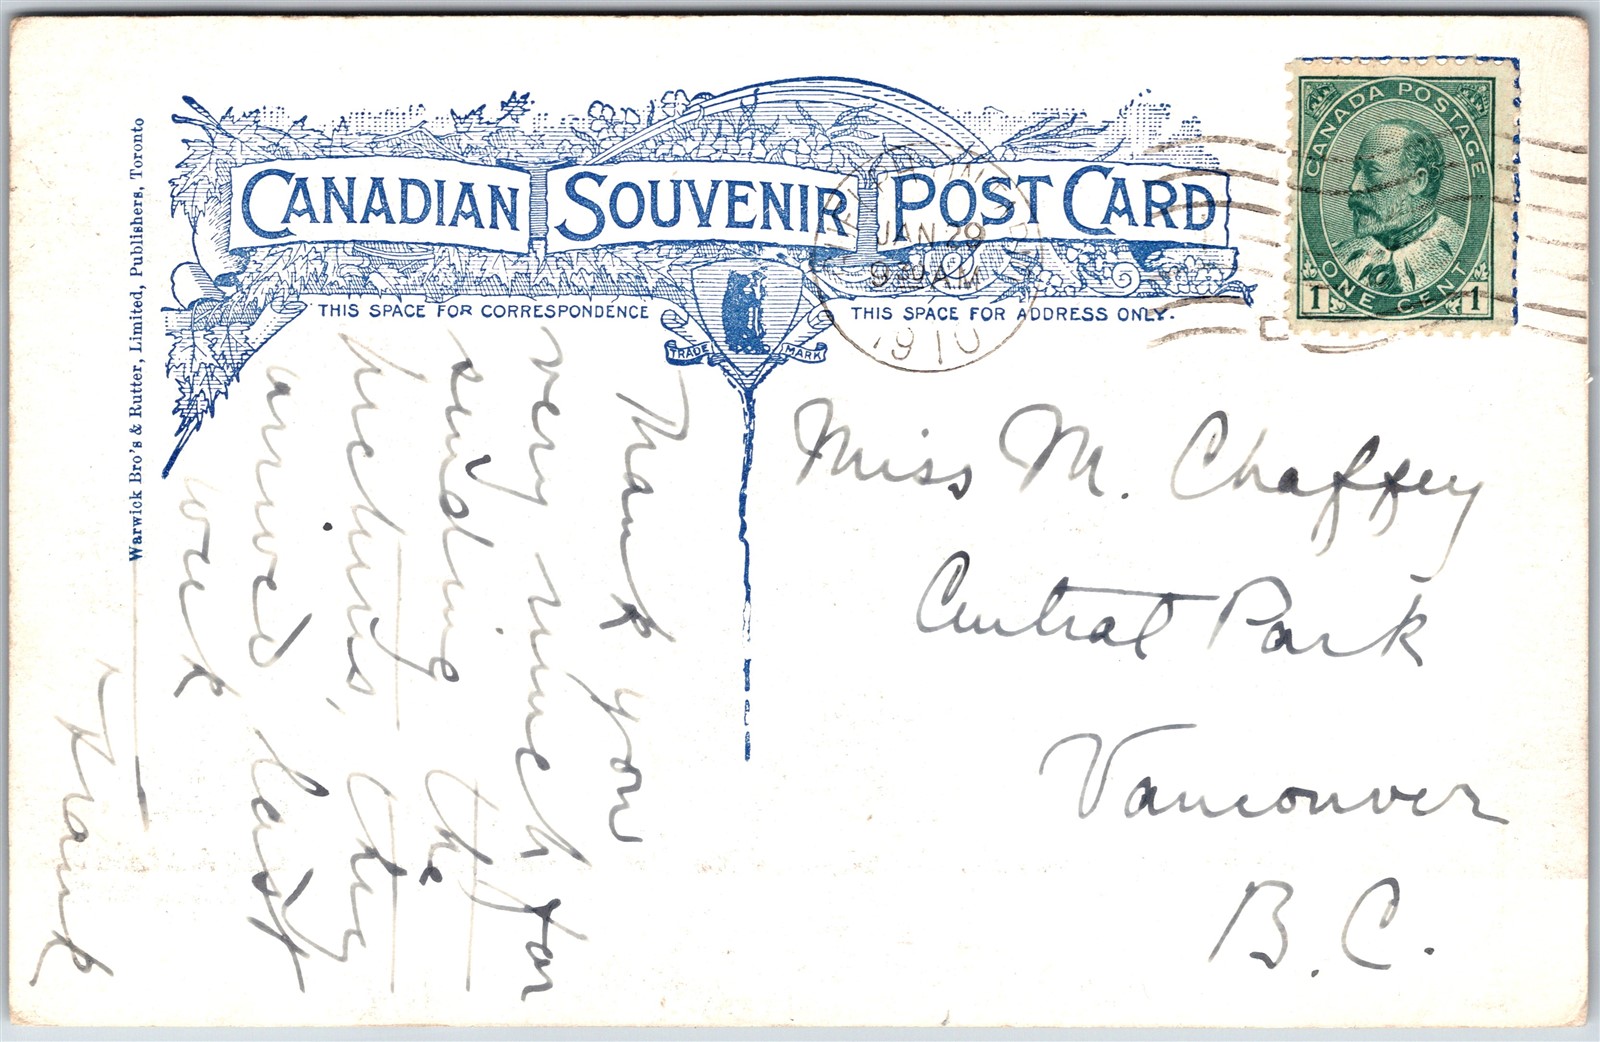 CANADIAN SOUVENIR POST CARD
THIS SPACE FOR CORRESPONDENCE
THIS SPACE FOR ADDRESS ONLY.
TRADE MARK
Warwick Bro's & Rutter, Limited, Publishers, Toronto
CANADA POSTAGE
ONE CENT
1 1
JAN 29
9 30 AM
1910
Thank you
very much for
sending the
pictures, they
arrived last
week
Frank
Miss M. Chaffey
Central Park
Vancouver
B.C.